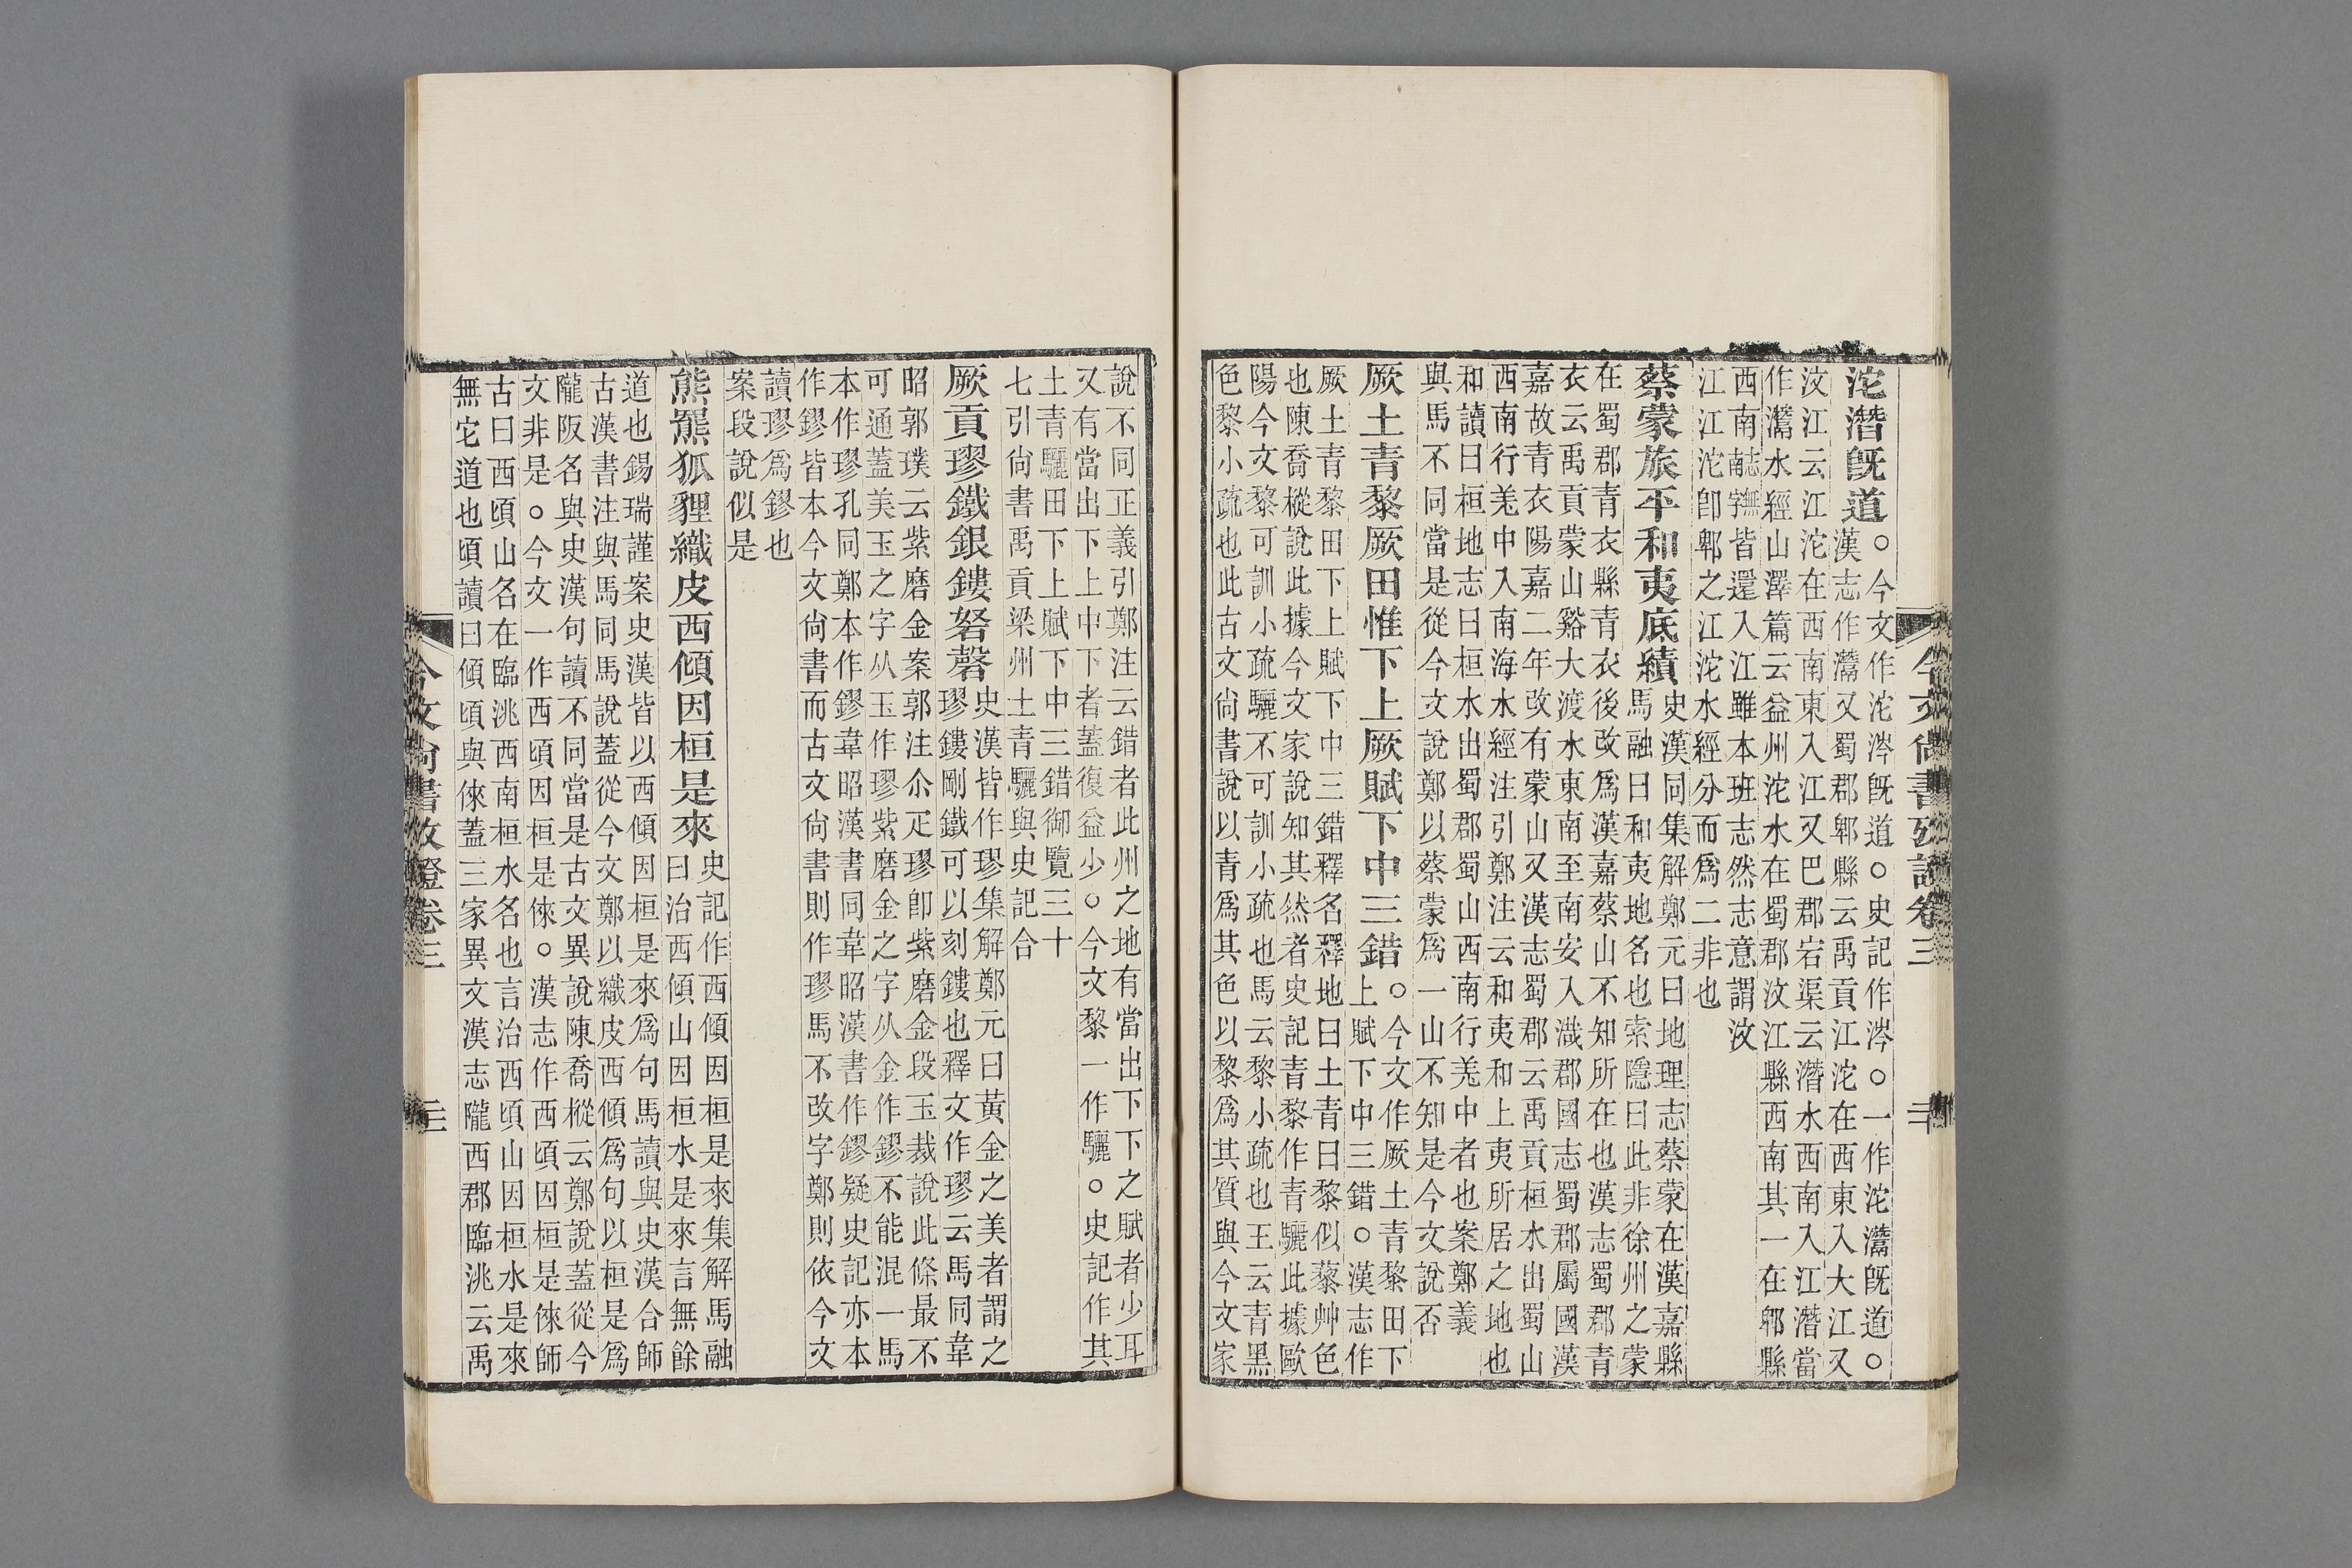 沱潛旣道。今文作沱涔旣道。史記作涔。一作沱灊旣道。
漢志作灊又蜀郡郫縣云禹貢江沱在西東入大江又
汶江云江沱在西南東入江又巴郡宕渠云潛水西南入江潛當
作灊水經山澤篇云益州沱水在蜀郡汶江縣西南其一在郫縣
西南南志無字皆還入江雖本班志然志意謂汶
江江沱卽郫之江沱水經分而爲二非也
蔡蒙旅平和夷厎績史漢同集解鄭元曰地理志蔡蒙在漢嘉縣
馬融曰和夷地名也索隱曰此非徐州之蒙
在蜀郡青衣縣青衣後改爲漢嘉蔡山不知所在也漢志蜀郡青
衣云禹貢蒙山谿大渡水東南至南安入渽郡國志蜀郡屬國漢
嘉故青衣陽嘉二年改有蒙山又漢志蜀郡云禹貢桓水出蜀山
西南行羌中入南海水經注引鄭注云和夷和上夷所居之地也
和讀曰桓地志曰桓水出蜀郡蜀山西南行羌中者也案鄭義
與馬不同當是從今文說鄭以蔡蒙爲一山不知是今文說否
厥土青黎厥田惟下上厥賦下中三錯。今文作厥土青黎田下
上賦下中三錯。漢志作
厥土青黎田下上賦下中三錯釋名釋地曰土青曰黎似藜艸色
也陳喬樅說此據今文家說知其然者史記青黎作青驪此據歐
陽今文黎可訓小疏驪不可訓小疏也馬云黎小疏也王云青黑
色黎小疏也此古文尙書說以青爲其色以黎爲其質與今文家
今文尙書攷證卷三
二十
說不同正義引鄭注云錯者此州之地有當出下下之賦者少耳
又有當出下上中下者蓋復益少。今文黎一作驪。史記作其
土青驪田下上賦下中三錯御覽三十
七引尙書禹貢梁州土青驪與史記合
厥貢璆鐵銀鏤砮磬史漢皆作璆集解鄭元曰黃金之美者謂之
璆鏤剛鐵可以刻鏤也釋文作璆云馬同韋
昭郭璞云紫磨金案郭注尒疋璆卽紫磨金段玉裁說此條最不
可通蓋美玉之字从玉作璆紫磨金之字从金作鏐不能混一馬
本作璆孔同鄭本作鏐韋昭漢書同韋昭漢書作鏐疑史記亦本
作鏐皆本今文尙書而古文尙書則作璆馬不改字鄭則依今文
讀璆爲鏐也
案段說似是
熊羆狐貍織皮西傾因桓是來史記作西傾因桓是來集解馬融
曰治西傾山因桓水是來言無餘
道也錫瑞謹案史漢皆以西傾因桓是來爲句馬讀與史漢合師
古漢書注與馬同馬說蓋從今文鄭以織皮西傾爲句以桓是爲
隴阪名與史漢句讀不同當是古文異說陳喬樅云鄭說蓋從今
文非是。今文一作西頃因桓是倈。漢志作西頃因桓是倈師
古曰西頃山名在臨洮西南桓水名也言治西頃山因桓水是來
無它道也頃讀曰傾頃與倈蓋三家異文漢志隴西郡臨洮云禹
今文尙書攷證卷三
二十